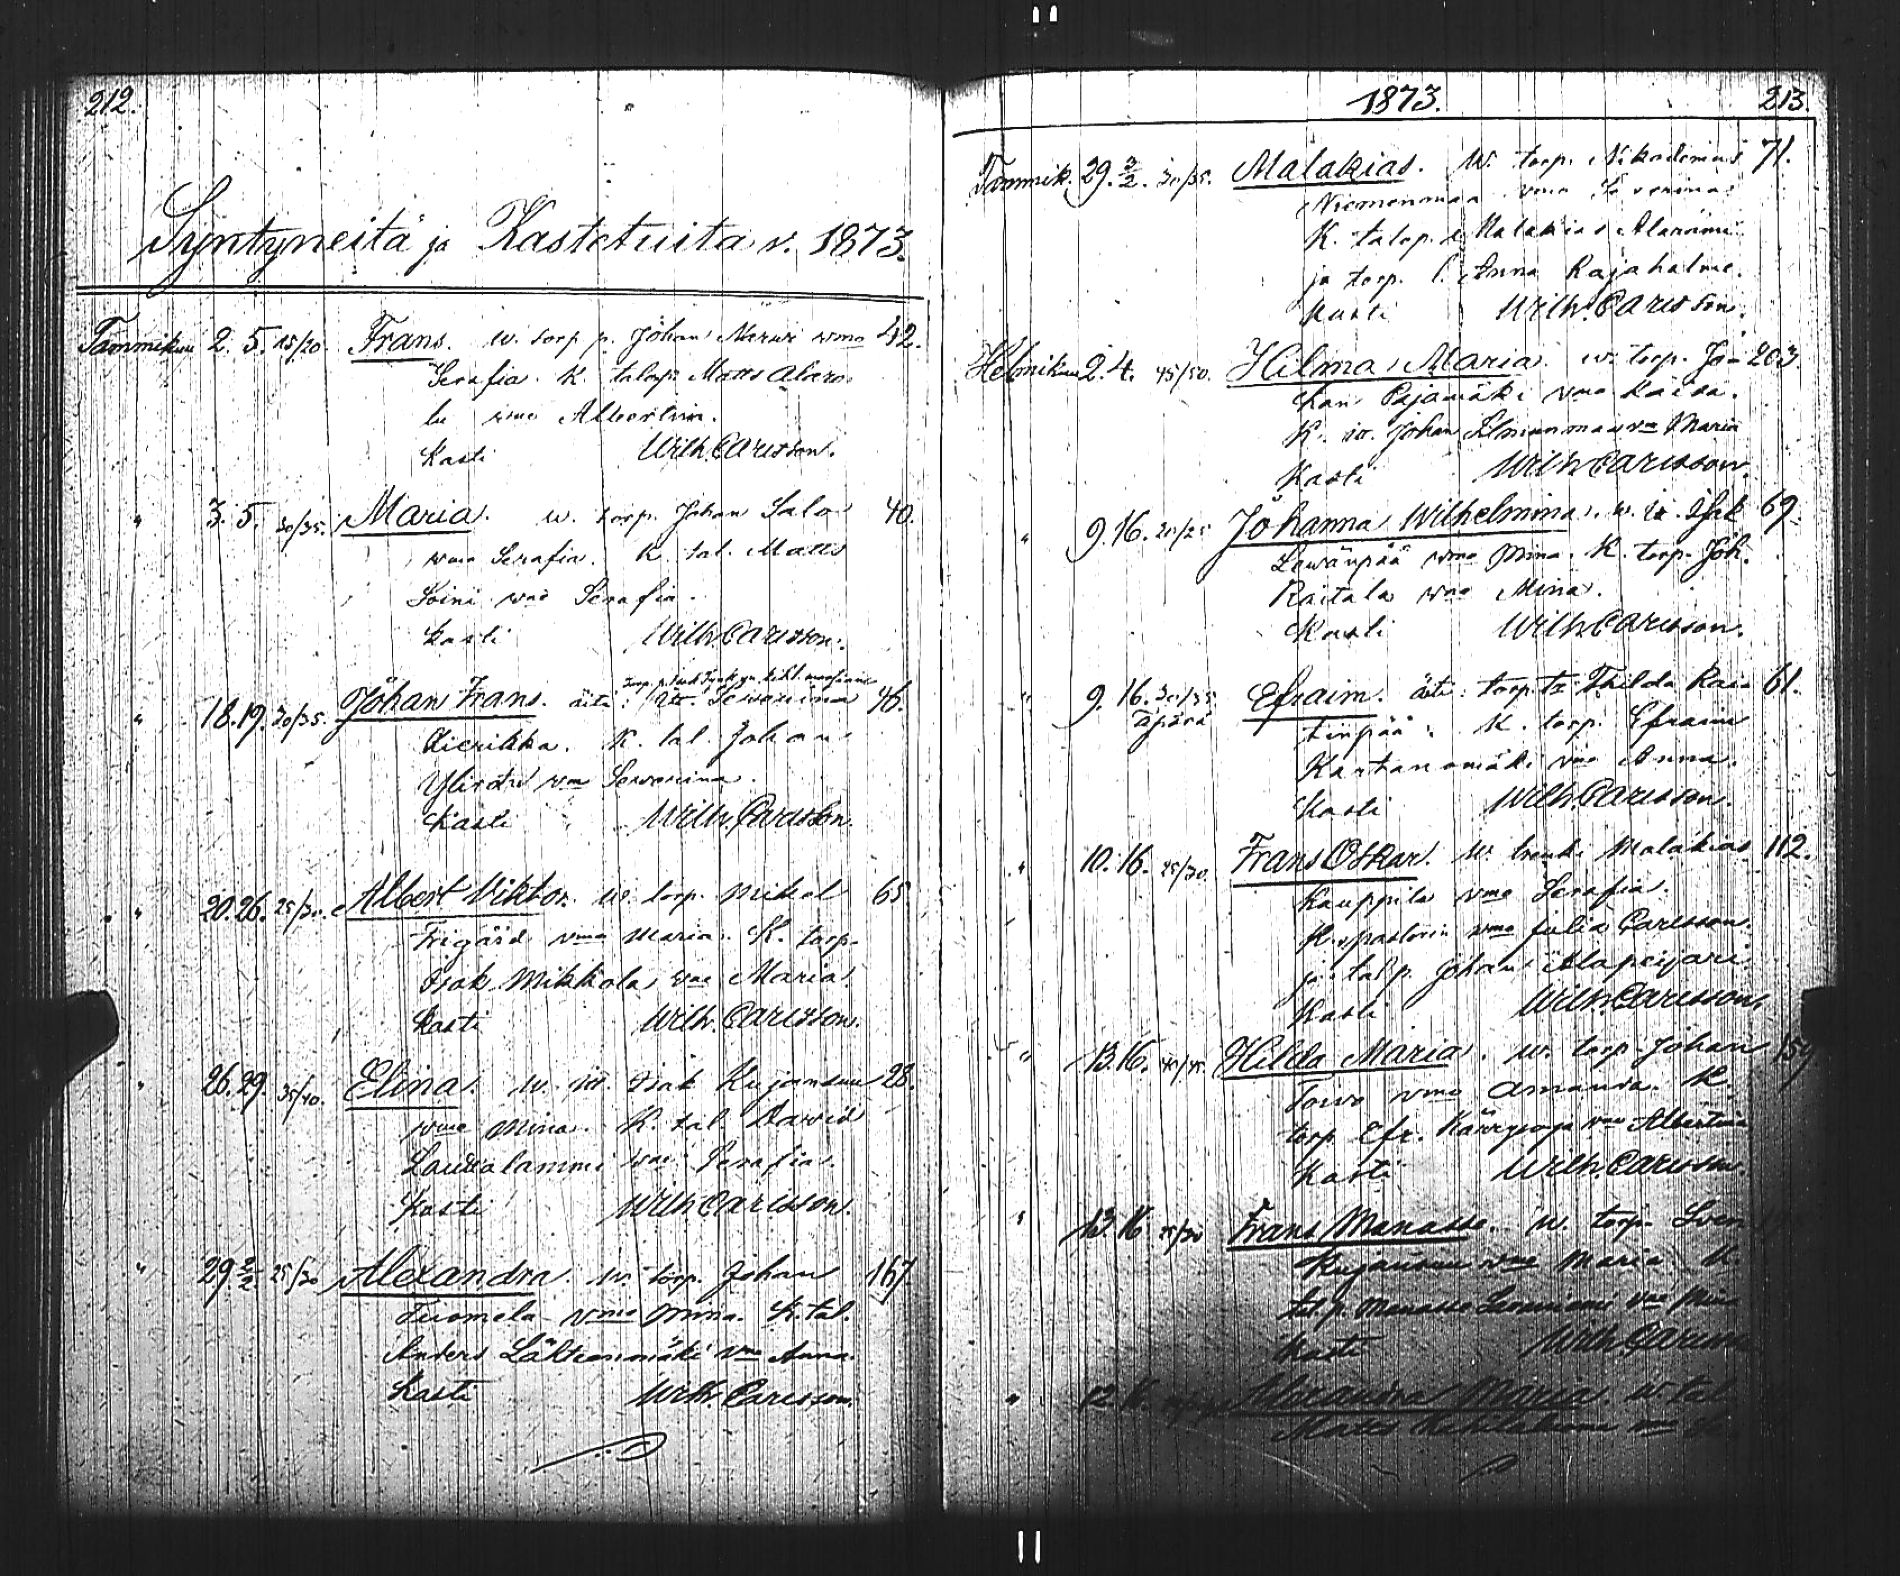 212.
Syntyneitä ja Kastetuita v. 1873.
Tammikuu 2. 5. 15/20. Frans. w. torp. p. Johan Narwi wmo 42.
Serafia. K. talop. Matts Alaro-
lu wmo Albertina.
Kasti Wilh. Carlsson.
" 3. 5. 30/35. Maria. w. torp. Johan Salo 40.
wmo Serafia. K. tal. Matts
Soini wmo Serafia.
Kasti Wilh. Carlsson.
" 18. 19. 30/35. Johan Frans. äiti: itt. Sewerina 46.
K. tal. Johan
wmo Sewerina.
Kasti Wilh. Carlsson.
" 20. 26. 25/30. Albert Viktor. w. torp. Mikel 65
Frigård wmo Maria. K. torp.
Isak Mikkola wmo Maria.
Kasti Wilh. Carlsson.
" 26. 29. 35/40. Elina. w. itt. Isak Kujansuu 28.
wmo Mina. K. tal. Dawid
Laurialammi wmo Serafia.
Kasti Wilh. Carlsson.
" 29. 2/2. 25/30 Alexandra. w. torp. Johan 167
Tuomela wmo Mina. K. tal.
Anders Lähteenmäki wmo Anna.
Kasti Wilh. Carlsson.
1873. 213.
Tammik. 29. 2/2. 30/35. Malakias. W. torp. Nikodemus 71.
Niemenmaa wmo Severina.
K. talop. p. Malakias Alaranni
ja torp. l. Anna Rajahalme.
Kasti Wilh. Carlsson.
Helmikuu 2. 4. 45/50. Hilma Maria. w. torp. Jo- 203.
han Pajamäki wmo Kaisa.
K. itt. Johan Ilmanmaa wmo Maria
Kasti Wilh. Carlsson.
" 9. 16. 20/25 Johanna Wilhelmina. w. itt. Isak 69.
Lewänpää wmo Mina. K. torp. Joh.
Raitala wmo Mina.
Kasti Wilh. Carlsson.
" 9. 16. 30/35 Efraim. äiti: torp. tr Thilda Rai- 61.
äpärä tinpää. K. torp. Efraim
Kartanomäki wmo Anna.
Kasti Wilh. Carlsson.
" 10. 16. 25/30. Frans Oskar. W. Malakias 112.
Kauppila wmo Serafia.
K. pastorin wmo Julia Carlsson.
ja tal. p. Johan Alapeijari.
Kasti Wilh. Carlsson.
" 13. 16. 40/45. Hilda Maria. w. torp. Johan 159
Torwo wmo Amanda. K.
torp. Efr. Kärrysoja wmo Albertina
Kasti Wilh. Carlsson
" 12. 16. 25/30 Frans Manasse. w. torp. Sven
Kujansuu wmo Maria. K.
tal. p. Manasse wmo Mina
Kasti Wilh. Carlsson
" 12. Alexandra Maria. w. tal.
Matts wmo